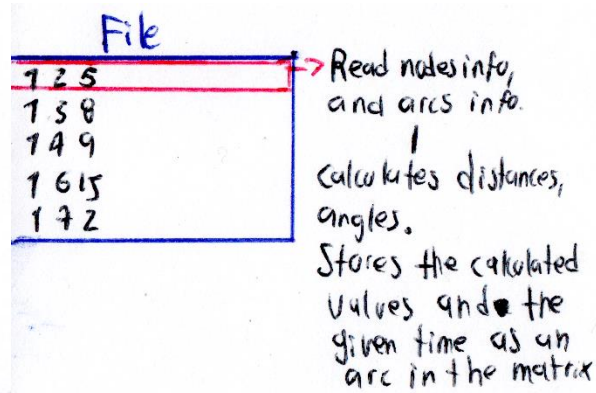 File
1 2 5
1 3 8
1 4 9
1 6 15
1 7 2
Read nodes info,
and arcs info.
calculates distances,
angles.
Stores the calculated
values and the
given time as an
arc in the matrix